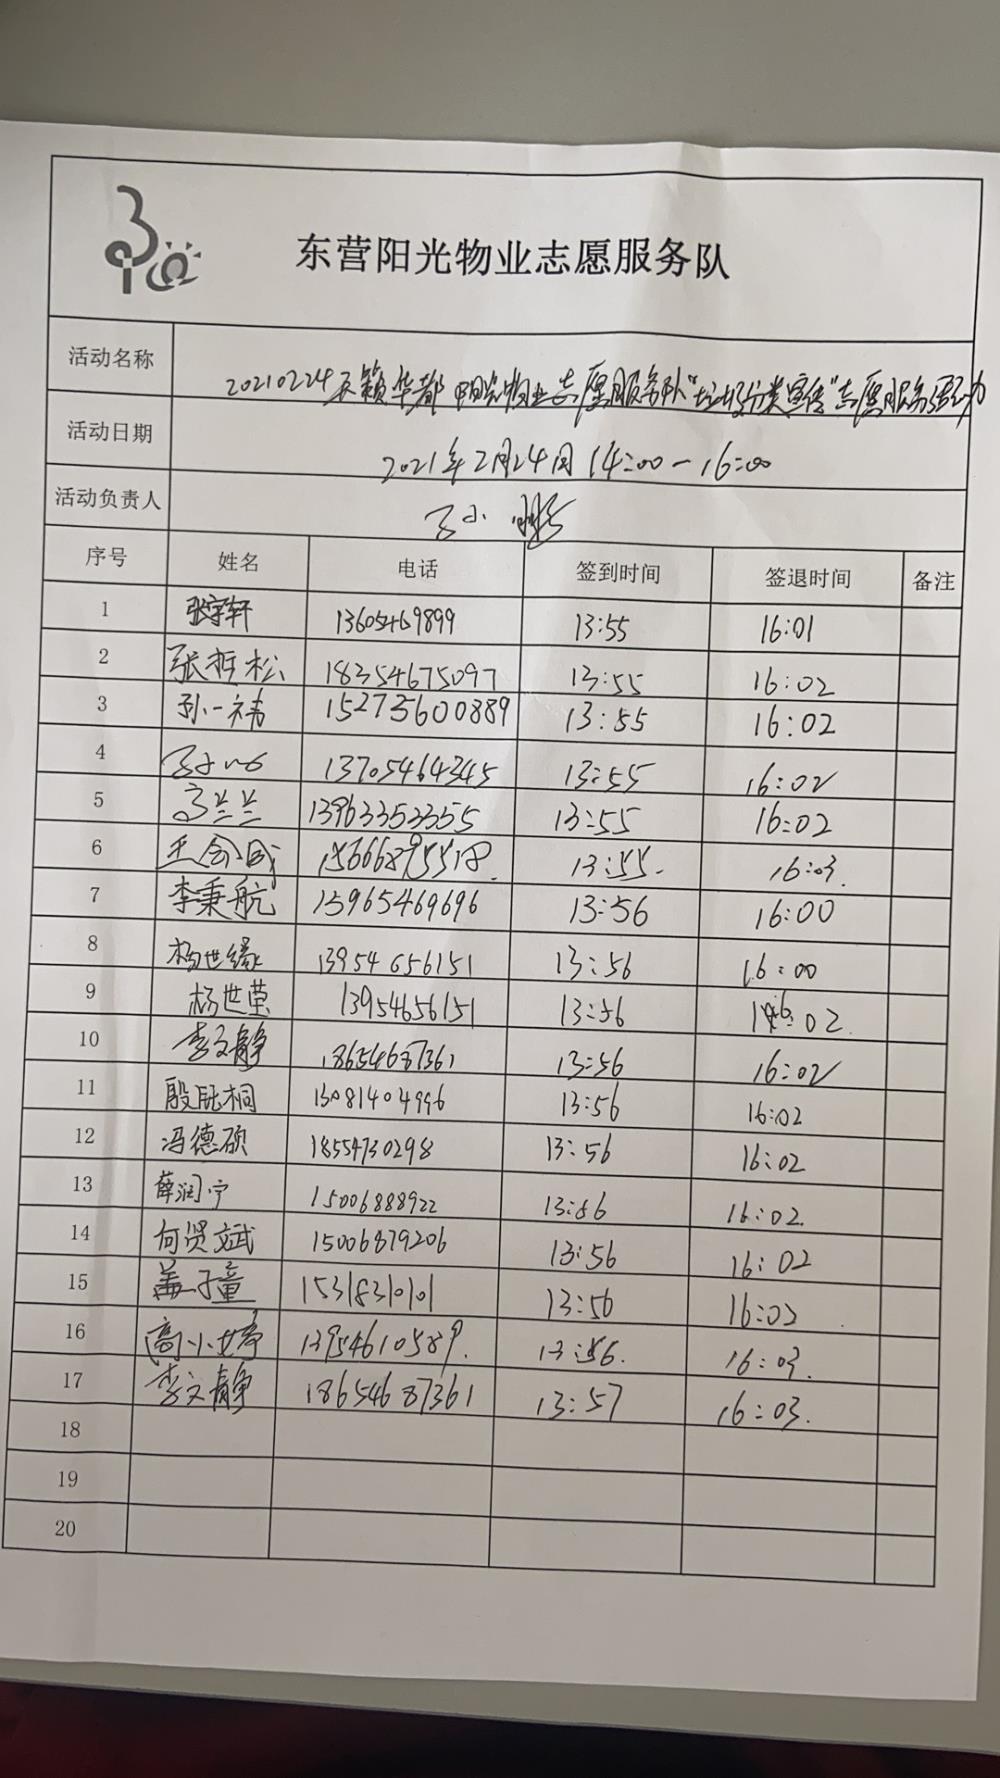 东营阳光物业志愿服务队
活动名称 20210224天籁华都阳光物业志愿服务队“垃圾分类宣传”志愿服务活动
活动日期 2021年2月24日 14:00-16:00
活动负责人
序号 姓名 电话 签到时间 签退时间 备注
1 张宇轩 13605469899 13:55 16:01
2 张哲松 18354675097 13:55 16:02
3 孙一祎 152735600889 13:55 16:02
4 13705464345 13:55 16:02
5 高兰兰 13963353355 13:55 16:02
6 王会成 15666895518 13:55 16:03
7 李秉航 15965469696 13:56 16:00
8 杨世缘 13954656151 13:56 16:00
9 杨世莹 13954656151 13:56 16:02
10 李文静 18654687361 13:56 16:02
11 殷 桐 13081404996 13:56 16:02
12 冯德硕 18554730298 13:56 16:02
13 薛润宁 15006888922 13:56 16:02
14 向贤斌 15006879206 13:56 16:02
15 盖子童 15318310101 13:56 16:02
16 高小婷 13954610589 13:56 16:03
17 李文静 18654687361 13:57 16:03
18
19
20